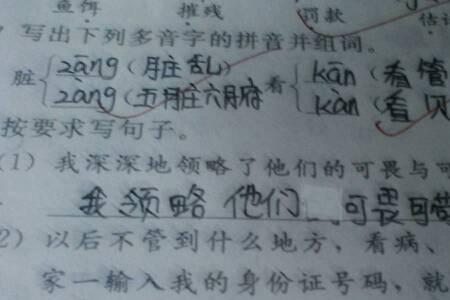 鱼饵 摧残 罚款 估
写出下列多音字的拼音并组词。
脏 zāng(脏乱) 看 kān(看管
zàng(五脏六府 kàn(看见
按要求写句子。
(1) 我深深地领略了他们的可畏与可
我领略他们 可畏可
2) 以后不管到什么地方、看病、
家一输入我的身份证号码，就